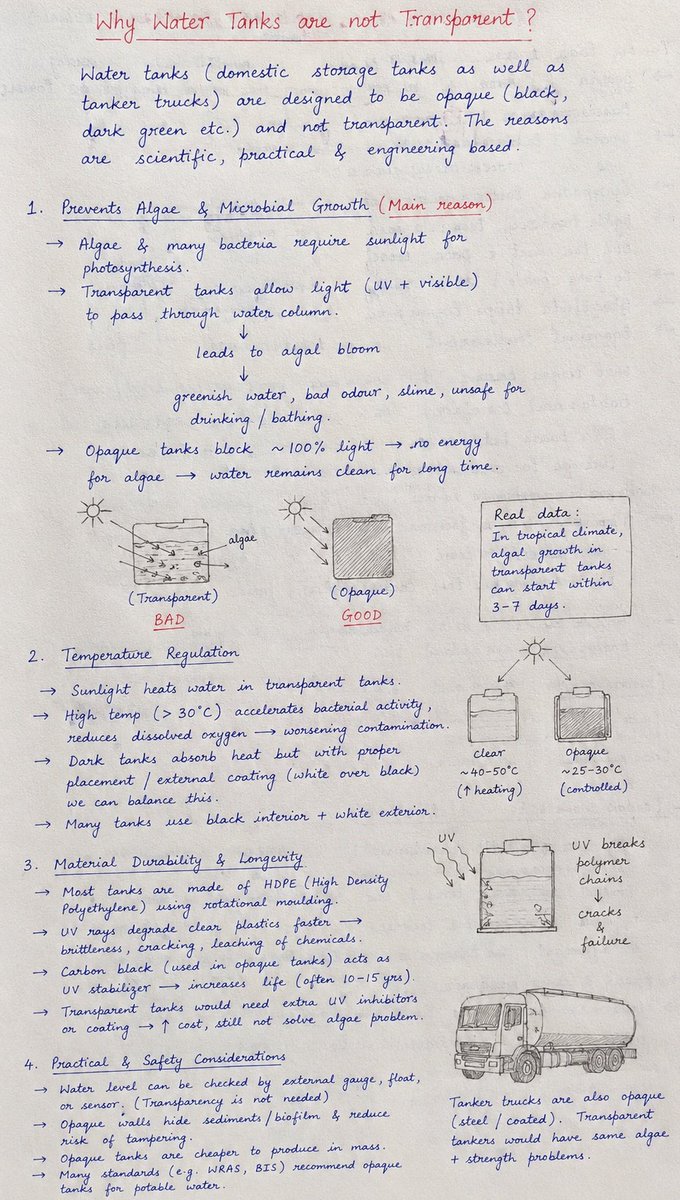 Why Water Tanks are not Transparent?
Water tanks (domestic storage tanks as well as
tanker trucks) are designed to be opaque (black,
dark green etc.) and not transparent. The reasons
are scientific, practical & engineering based.
1. Prevents Algae & Microbial Growth (Main reason)
→ Algae & many bacteria require sunlight for
photosynthesis.
→ Transparent tanks allow light (UV + visible)
to pass through water column.
↓
leads to algal bloom
↓
greenish water, bad odour, slime, unsafe for
drinking / bathing.
→ Opaque tanks block ~100% light → no energy
for algae → water remains clean for long time.
algae
(Transparent)
BAD
(Opaque)
GOOD
Real data:
In tropical climate,
algal growth in
transparent tanks
can start within
3-7 days.
2. Temperature Regulation
→ Sunlight heats water in transparent tanks.
→ High temp (>30°C) accelerates bacterial activity,
reduces dissolved oxygen → worsening contamination.
→ Dark tanks absorb heat but with proper
placement / external coating (white over black)
we can balance this.
→ Many tanks use black interior + white exterior.
clear
~40-50°C
(↑ heating)
Opaque
~25-30°C
(controlled)
3. Material Durability & Longevity
→ Most tanks are made of HDPE (High Density
Polyethylene) using rotational moulding.
→ UV rays degrade clear plastics faster →
brittleness, cracking, leaching of chemicals.
→ Carbon black (used in opaque tanks) acts as
UV stabilizer → increases life (often 10-15 yrs).
→ Transparent tanks would need extra UV inhibitors
or coating → ↑ cost, still not solve algae problem.
UV
UV breaks
polymer
chains
↓
cracks
&
failure
4. Practical & Safety Considerations
→ Water level can be checked by external gauge, float,
or sensor. (Transparency is not needed)
→ Opaque walls hide sediments/biofilm & reduce
risk of tampering.
→ Opaque tanks are cheaper to produce in mass.
→ Many standards (e.g. WRAS, BIS) recommend opaque
tanks for potable water.
Tanker trucks are also opaque
(steel / coated). Transparent
tankers would have same algae
+ strength problems.